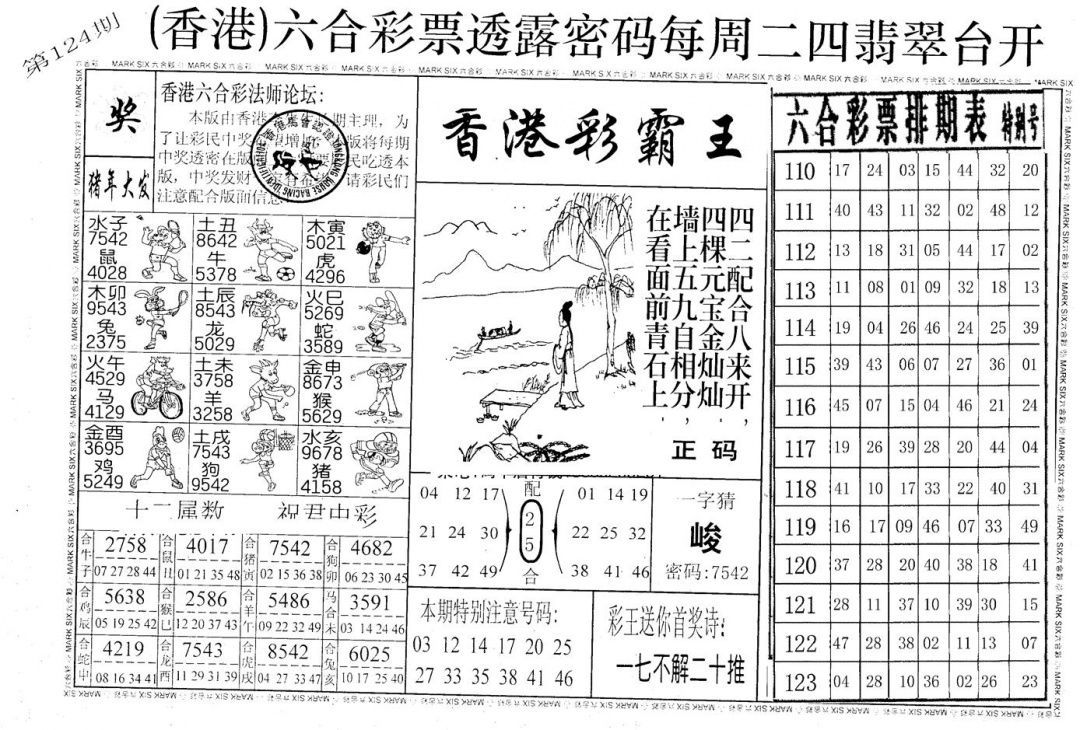 第124期
(香港)六合彩票透露密码每周二四翡翠台开
奖
猪年大发
香港六合彩法师论坛:
本版由香港
期主理，为
了让彩民中奖
增
版将每期
中奖透密在版
民吃透本
版，中奖发财
请彩民们
注意配合版面信息
水子
7542
鼠
4028
土丑
8642
牛
5378
木寅
5021
虎
4296
木卯
9543
兔
2375
土辰
8543
龙
5029
火巳
5269
蛇
3589
火午
4529
马
4129
土未
3758
羊
3258
金申
8673
猴
5629
金酉
3695
鸡
5249
土戌
7543
狗
9542
水亥
9678
猪
4158
十二属数 祝君中彩
合牛子 2758 07 27 28 44
合鼠丑 4017 01 21 35 48
合猪寅 7542 02 15 36 38
合狗卯 4682 06 23 30 45
合鸡辰 5638 05 19 25 42
合猴巳 2586 12 20 37 43
合羊午 5486 09 22 32 49
马合未 3591 03 14 24 46
合蛇申 4219 08 16 34 41
合龙酉 7543 11 29 31 39
合虎戌 8542 04 27 33 47
合兔亥 6025 10 17 25 40
香港彩霸王
四二配合八来开，
四棵元宝金灿灿．
墙上五九自相分，
在看面前青石上．
正码
04 12 17 配 01 14 19
21 24 30 25 22 25 32
37 42 49 合 38 41 46
一字猜
峻
密码:7542
本期特别注意号码:
03 12 14 17 20 25
27 33 35 38 41 46
彩王送你首奖诗:
一七不解二十推
六合彩票排期表 特别号
110 17 24 03 15 44 32 20
111 40 43 11 32 02 48 12
112 13 18 31 05 44 17 02
113 11 08 01 09 32 18 13
114 19 04 26 46 24 25 39
115 39 43 06 07 27 36 01
116 45 07 15 04 46 21 24
117 19 26 39 28 20 44 04
118 41 10 17 33 22 40 31
119 16 17 09 46 07 33 49
120 37 28 20 40 38 18 41
121 28 11 37 10 39 30 15
122 47 28 38 02 11 13 07
123 04 28 10 36 02 26 23
MARK SIX六合彩